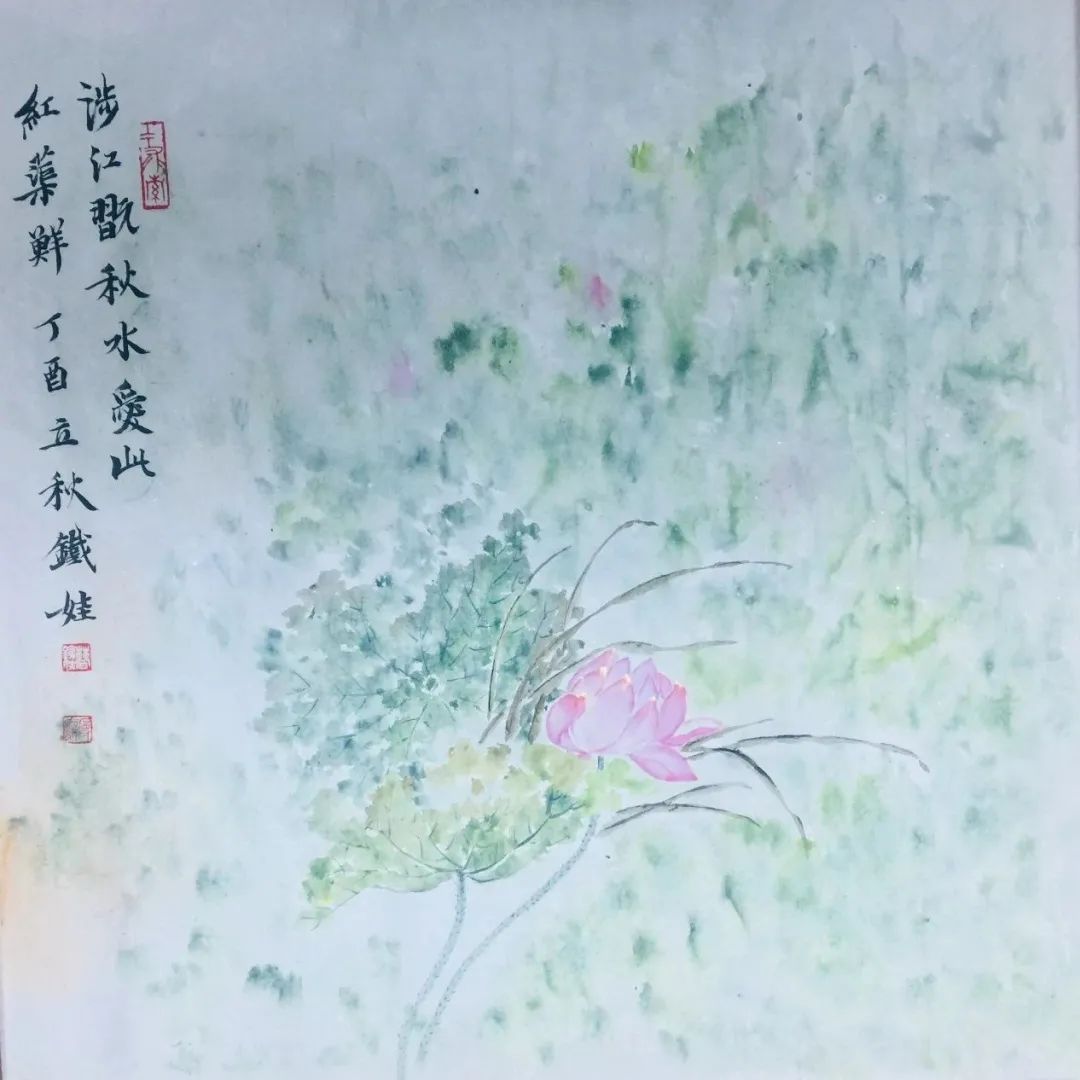 涉江翫秋水愛此
紅蕖鮮 丁酉立秋鐵娃